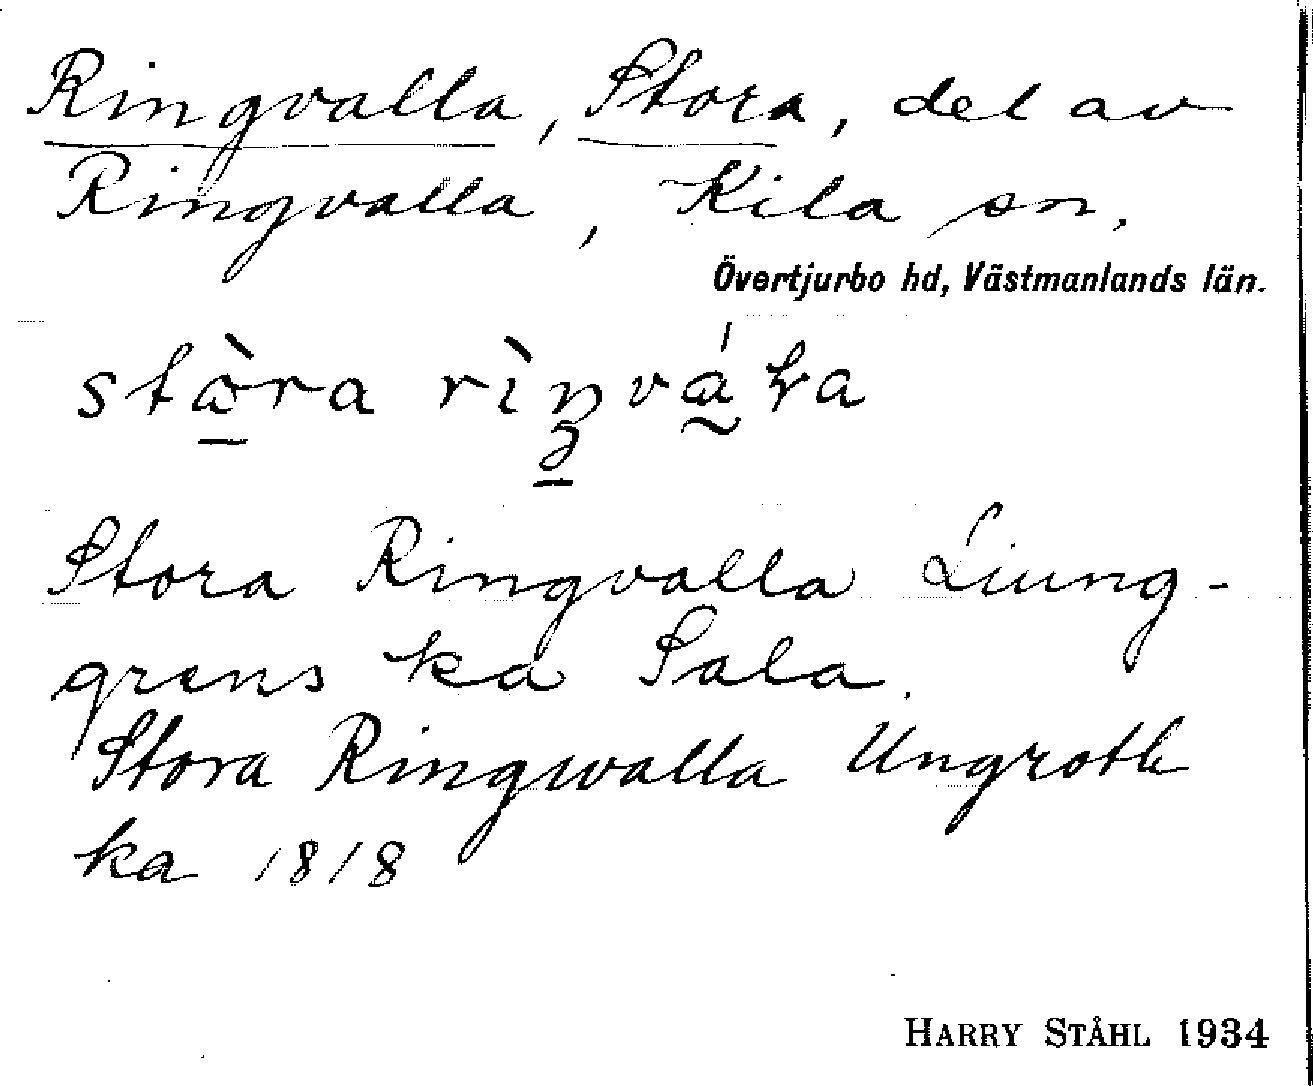 Ringvalla, Stora, del av
Ringvalla, Kila sn.
Övertjurbo hd, Västmanlands län.
Stora Ringvalla Liung-
grens ka Sala.
Stora Ringwalla Ungroth
ka 1818
HARRY STÅHL 1934